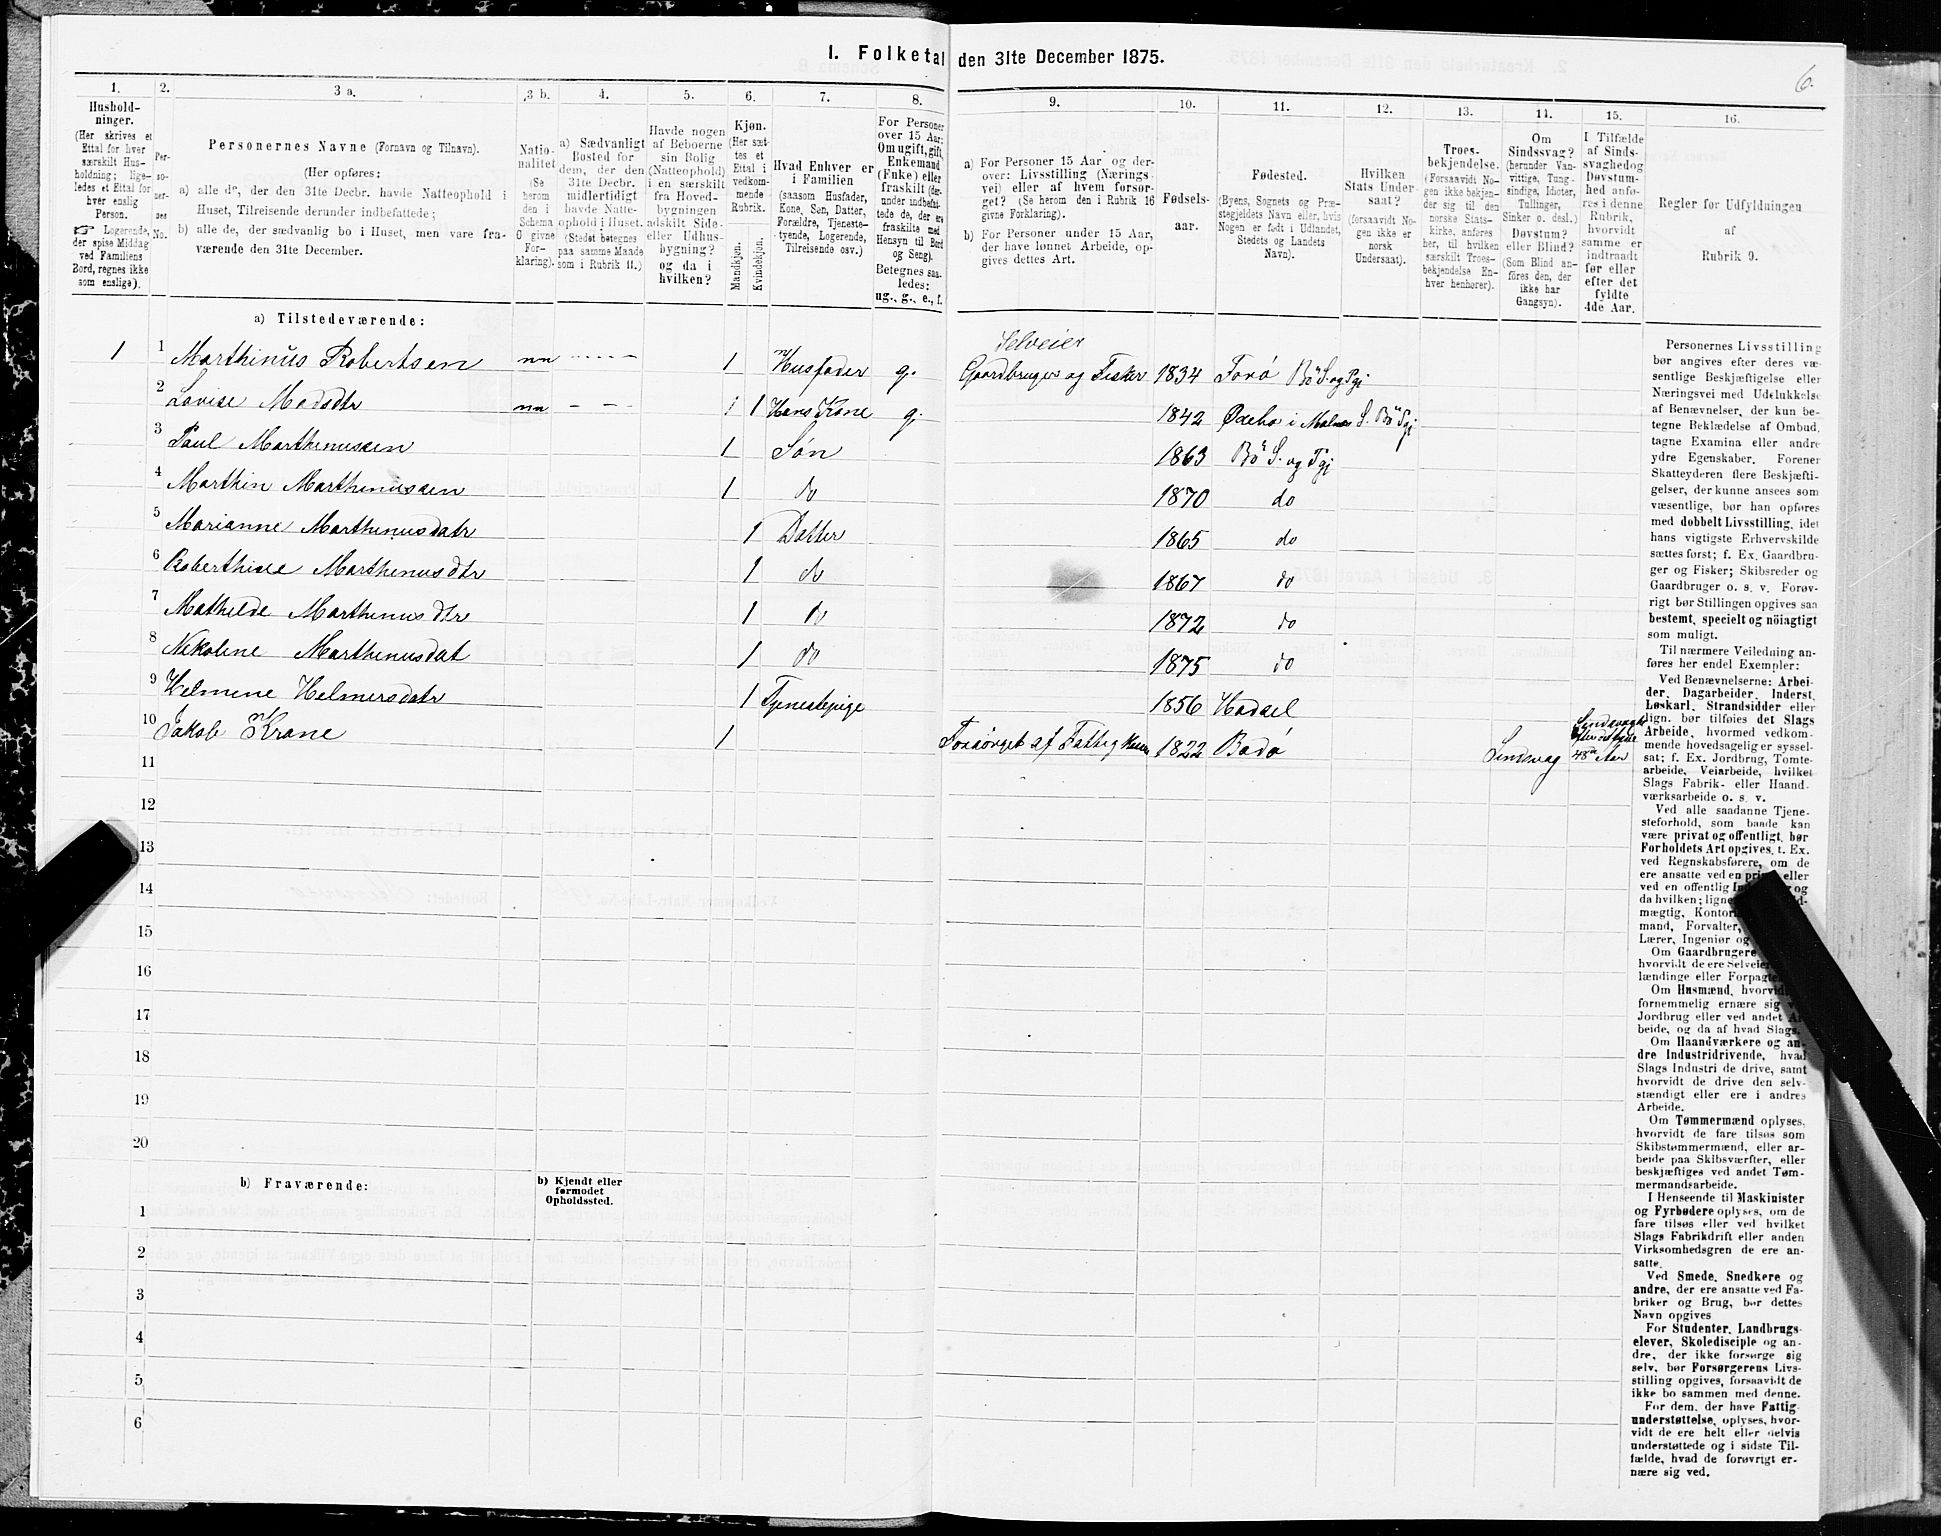 I. Folketal den 31te December 1875.
6.
1. 2. 3 a. 3 b. 4. 5. 6. 7. 8. 9. 10. 11. 12. 13. 14. 15. 16.
Husholdninger.
(Her skrives et
Ettal for hver
særskilt Husholdning;
ligeledes et Ettal for
hver enslig
Person.
☞ Logerende,
der spise Middag
ved Familiens
Bord, regnes ikke
som enslige).
Personernes No.
Personernes Navne (Fornavn og Tilnavn).
(Her opføres:
a) alle de, der den 31te Decbr. havde Natteophold i
Huset, Tilreisende derunder indbefattede;
b) alle de, der sædvanlig bo i Huset, men vare fraværende
den 31te December.
Nationalitet
(Se
herom
den i
Schema
O givne
Forklaring).
a) Sædvanligt
Bosted for
dem, der den
31te Decbr.
midlertidigt
havde Natteophold
i Huset.
(Stedet betegnes
paa samme Maade
som i Rubrik 11.)
Havde nogen
af Beboerne
sin Bolig
(Natteophold)
i en særskilt
fra Hovedbygningen
adskilt Side-
eller Udhusbygning?
og da i
hvilken?
Kjøn.
(Her sættes
et
Ettal i
vedkommende
Rubrik.
Mandkjøn.
Kvindekjøn.
Hvad Enhver er
i Familien
(saasom Husfader,
Kone, Søn, Datter,
Forældre, Tjenestetyende,
Logerende,
Tilreisende osv.)
For Personer
over 15 Aar:
Om ugift, gift,
Enkemand
(Enke) eller
fraskilt (derunder
indbefattede
de, der ere
fraskilte med
Hensyn til Bord
og Seng).
Betegnes saaledes:
ug., g., e., f.
a) For Personer 15 Aar og derover:
Livsstilling (Næringsvei)
eller af hvem forsørget?
(Se herom den i Rubrik 16
givne Forklaring).
b) For Personer under 15 Aar,
der have lønnet Arbeide, opgives
dettes Art.
Fødselsaar.
Fødested.
(Byens, Sognets og Præstegjeldets
Navn eller, hvis
Nogen er født i Udlandet,
Stedets og Landets
Navn).
Hvilken
Stats Undersaat?
(forsaavidt Nogen
ikke er
norsk
Undersaat).
Troesbekjendelse.
(Forsaavidt Nogen
ikke bekjender
sig til den
norske Statskirke,
anføres
her, til hvilken
særskilt Troesbekjendelse
Enhver
henhører).
Om
Sindssvag?
(herunder Vanvittige,
Tungsindige,
Idioter,
Tullinger,
Sinker o. desl.)
Døvstum?
eller Blind?
(Som Blind anføres
den, der
ikke har
Gangsyn).
I Tilfælde
af Sindssvaghed
og
Døvstumhed
anføres
i denne
Rubrik,
hvorvidt
samme er
indtraadt
før eller
efter det
fyldte
4de Aar.
Regler for Udfyldningen
af
Rubrik 9.
a) Tilstedeværende:
Selveier
1 1 Marthinus Robertsen nn 1 Husfader g. Gaardbruger og Fisker 1834 Forø Bö S. og Pgj
2 Lovise Madsdtr nn 1 Hans Kone g. 1842 i Malnes S. Bö Pgj
3 Paul Marthinussen 1 Søn 1863 Bö S. og Pgj
4 Marthin Marthinussen 1 do 1870 do
5 Marianne Marthinusdatr 1 Datter 1865 do
6 Roberthine Marthinusdtr 1 do 1867 do
7 Mathilde Marthinusdtr 1 do 1872 do
8 Nekoline Marthinusdat 1 do 1875 do
9 Helmine Helmersdatr 1 Tjenestepige 1856 Hadsel
10 Jakob Krane 1 Forsørget af Fattig 1822 Bodö Sindsvag
11
12
13
14
15
16
17
18
19
20
b) Fraværende:
b) Kjendt eller
formodet
Opholdssted.
1
2
3
4
5
6
Personernes Livsstilling
bør angives efter deres væsentlige
Beskjæftigelse eller
Næringsvei med Udelukkelse
af Benævnelser, der kun betegne
Beklædelse af Ombud,
tagne Examina eller andre
ydre Egenskaber. Forener
Skatteyderen flere Beskjæftigelser,
der kunne ansees som
væsentlige, bør han opføres
med dobbelt Livsstilling, idet
hans vigtigste Erhvervskilde
sættes først; f. Ex. Gaardbruger
og Fisker; Skibsreder og
Gaardbruger o. s. v. Forøvrigt
bør Stillingen opgives saa
bestemt, specielt og nöiagtigt
som muligt.
Til nærmere Veiledning anføres
her endel Exempler:
Ved Benævnelserne: Arbeider,
Dagarbeider, Inderst,
Løskarl, Strandsidder eller
lign. bør tilføies det Slags
Arbeide, hvormed vedkommende
hovedsagelig er sysselsat;
f. Ex. Jordbrug, Tomtearbeide,
Veiarbeide, hvilket
Slags Fabrik- eller Haandværksarbeide
o. s. v.
Ved alle saadanne Tjenesteforhold,
som baade kan
være privat og offentligt, bør
Forholdets Art opgives, t. Ex.
ved Regnskabsførere, om de
ere ansatte ved en eller
ved en offentlig og
da hvilken;
mægtig,
mand, Forvalter,
Lærer, Ingeniør og
Om Gaardbrugere
hvorvidt de ere
lændinge eller
Om Husmænd,
fornemmelig ernære sig
Jordbrug eller ved andet
beide, og da af hvad Slags.
Om Haandværkere og andre
Industridrivende, hvad
Slags Industri de drive, samt
hvorvidt de drive den selvstændigt
eller ere i andres
Arbeide.
Om Tømmermænd oplyses,
hvorvidt de fare tilsøs som
Skibstømmermænd, eller arbeide
paa Skibsværfter, eller
beskjæftiges ved andet Tømmermandsarbeide.
I Henseende til Maskinister
og Fyrbødere oplyses, om de
fare tilsøs eller ved hvilket
Slags Fabrikdrift eller anden
Virksomhedsgren de ere ansatte.
Ved Smede, Snedkere og
andre, der ere ansatte ved Fabriker
og Brug, bør dettes
Navn opgives
For Studenter, Landbrugselever,
Skoledisciple og andre,
der ikke forsørge sig
selv, bør Forsørgerens Livsstilling
opgives, forsaavidt de
ikke bo sammen med denne.
For dem, der have Fattigunderstøttelse,
oplyses, hvorvidt
de ere helt eller delvis
understøttede og i sidste Tilfælde,
hvad de forøvrigt ernære
sig ved.